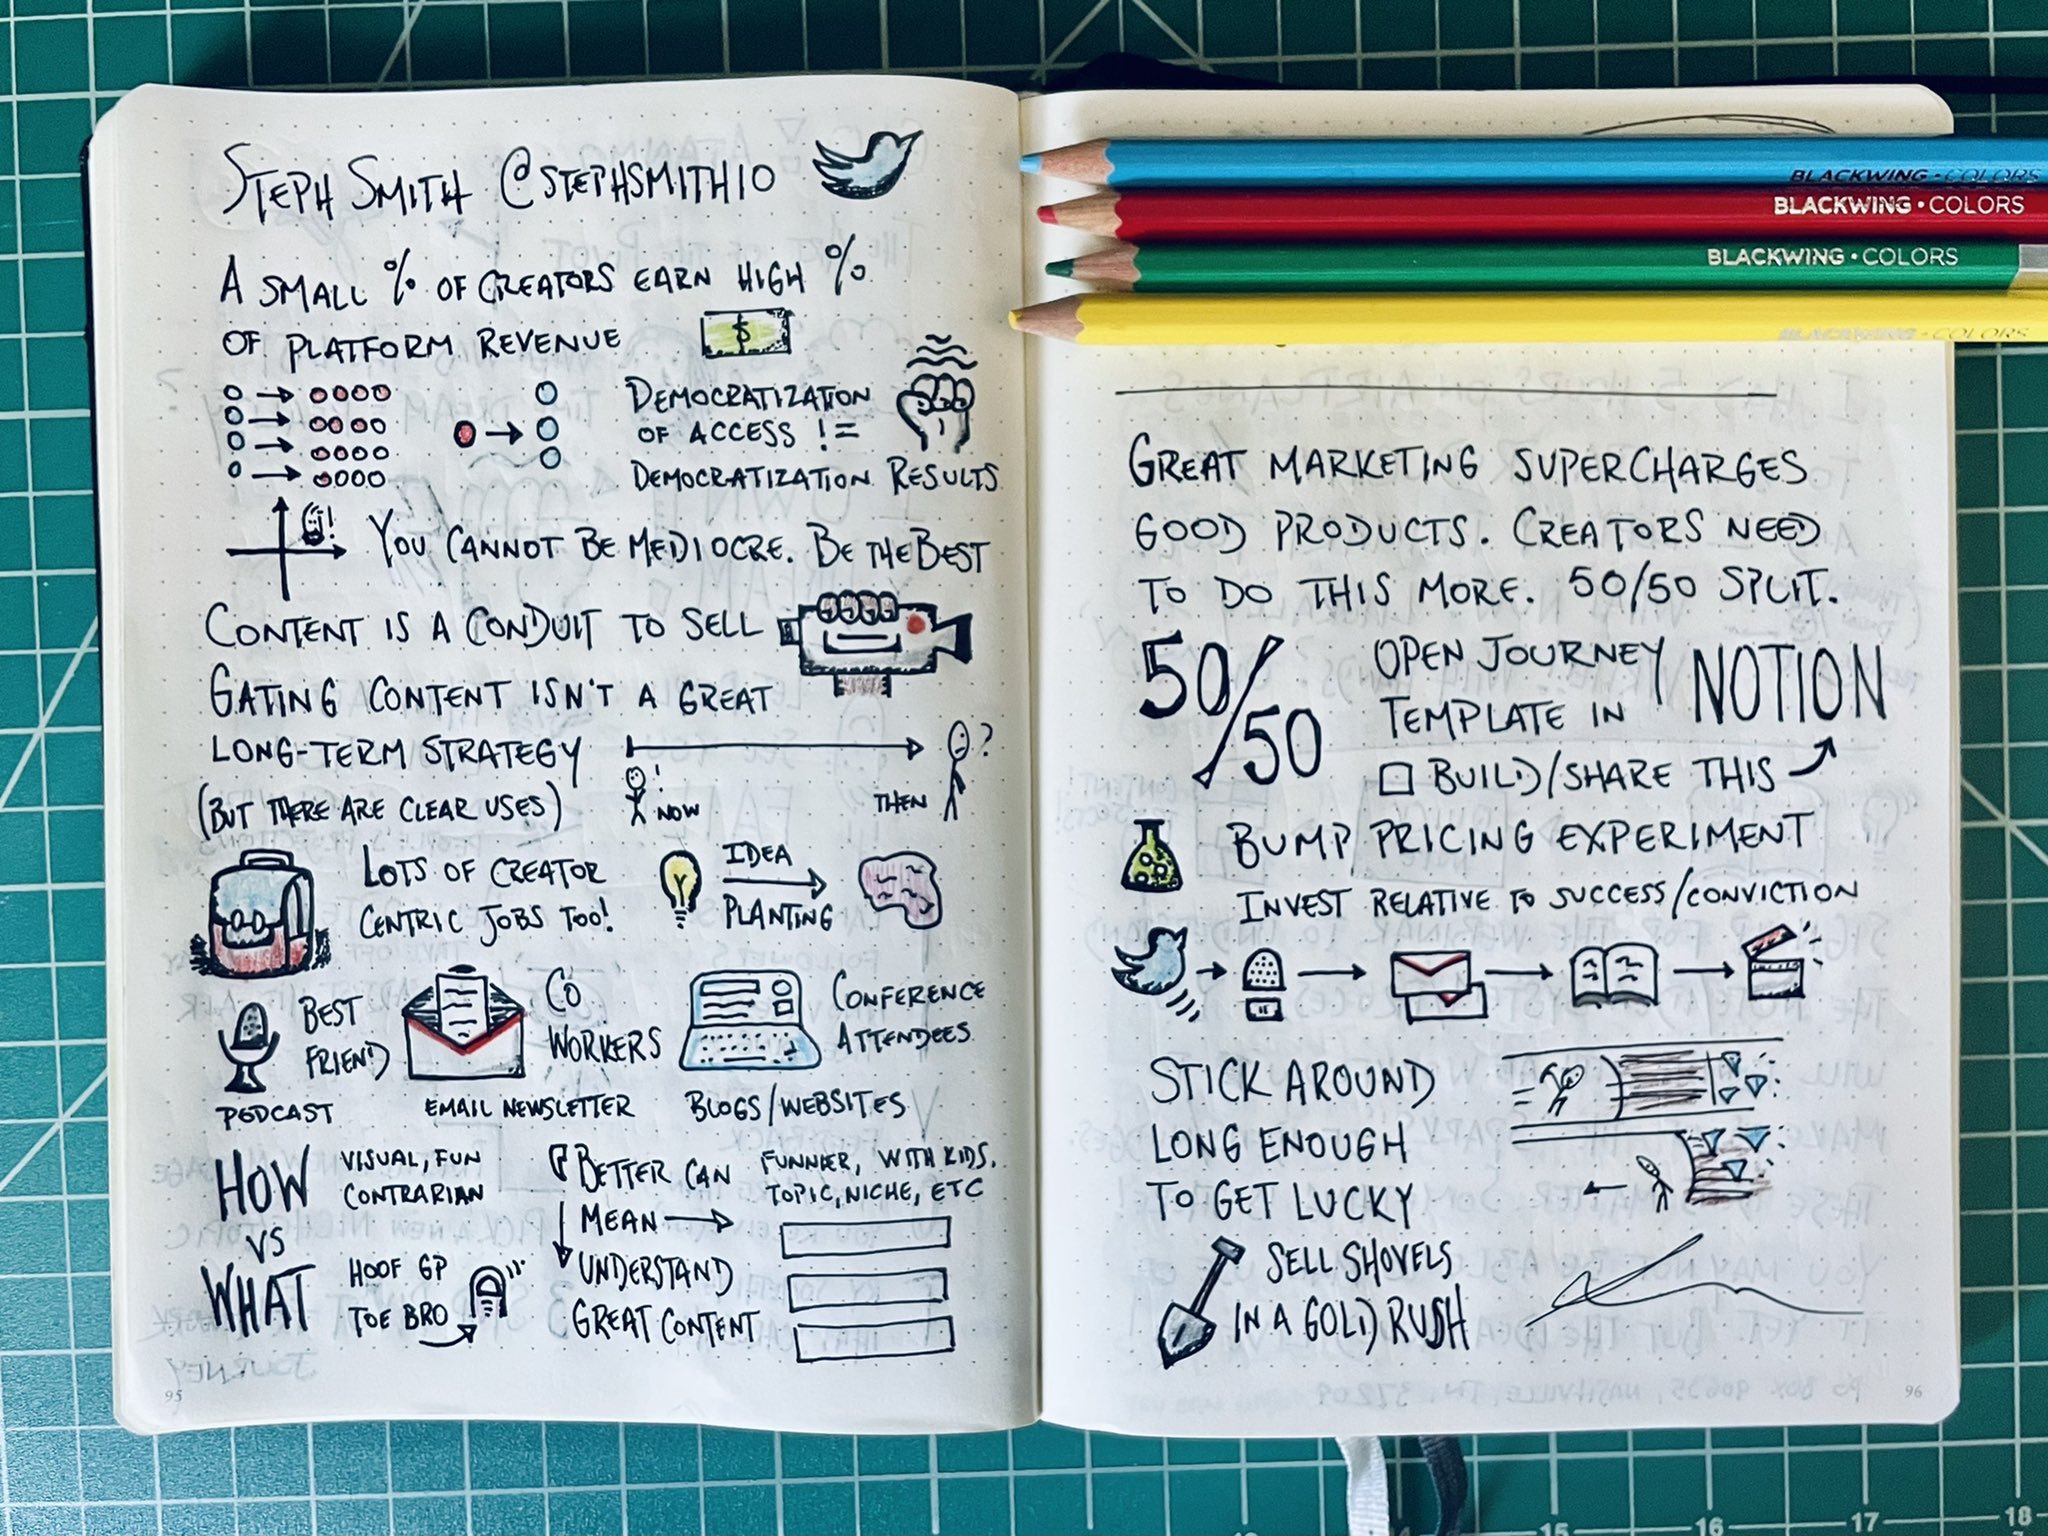 STEPH SMITH @STEPHSMITH10
A SMALL % OF CREATORS EARN HIGH %
OF PLATFORM REVENUE
$
DEMOCRATIZATION
OF ACCESS !=
DEMOCRATIZATION RESULTS
!
YOU CANNOT BE MEDIOCRE. BE THE BEST
CONTENT IS A CONDUIT TO SELL
GATING CONTENT ISN'T A GREAT
LONG-TERM STRATEGY
(BUT THERE ARE CLEAR USES)
!
NOW
?
THEN
LOTS OF CREATOR
CENTRIC JOBS TOO!
IDEA
PLANTING
BEST
FRIEND
PODCAST
CO
WORKERS
EMAIL NEWSLETTER
CONFERENCE
ATTENDEES
BLOGS/WEBSITES
HOW
VS
WHAT
VISUAL, FUN
CONTRARIAN
HOOF GP
TOE BRO
BETTER CAN
MEAN
FUNNIER, WITH KIDS,
TOPIC, NICHE, ETC
UNDERSTAND
GREAT CONTENT
95
BLACKWING • COLORS
BLACKWING • COLORS
BLACKWING • COLORS
BLACKWING • COLORS
GREAT MARKETING SUPERCHARGES
GOOD PRODUCTS. CREATORS NEED
TO DO THIS MORE. 50/50 SPLIT.
50/50
OPEN JOURNEY
TEMPLATE IN NOTION
BUILD/SHARE THIS
BUMP PRICING EXPERIMENT
INVEST RELATIVE TO SUCCESS/CONVICTION
STICK AROUND
LONG ENOUGH
TO GET LUCKY
SELL SHOVELS
IN A GOLD RUSH
96
15
16
17
18